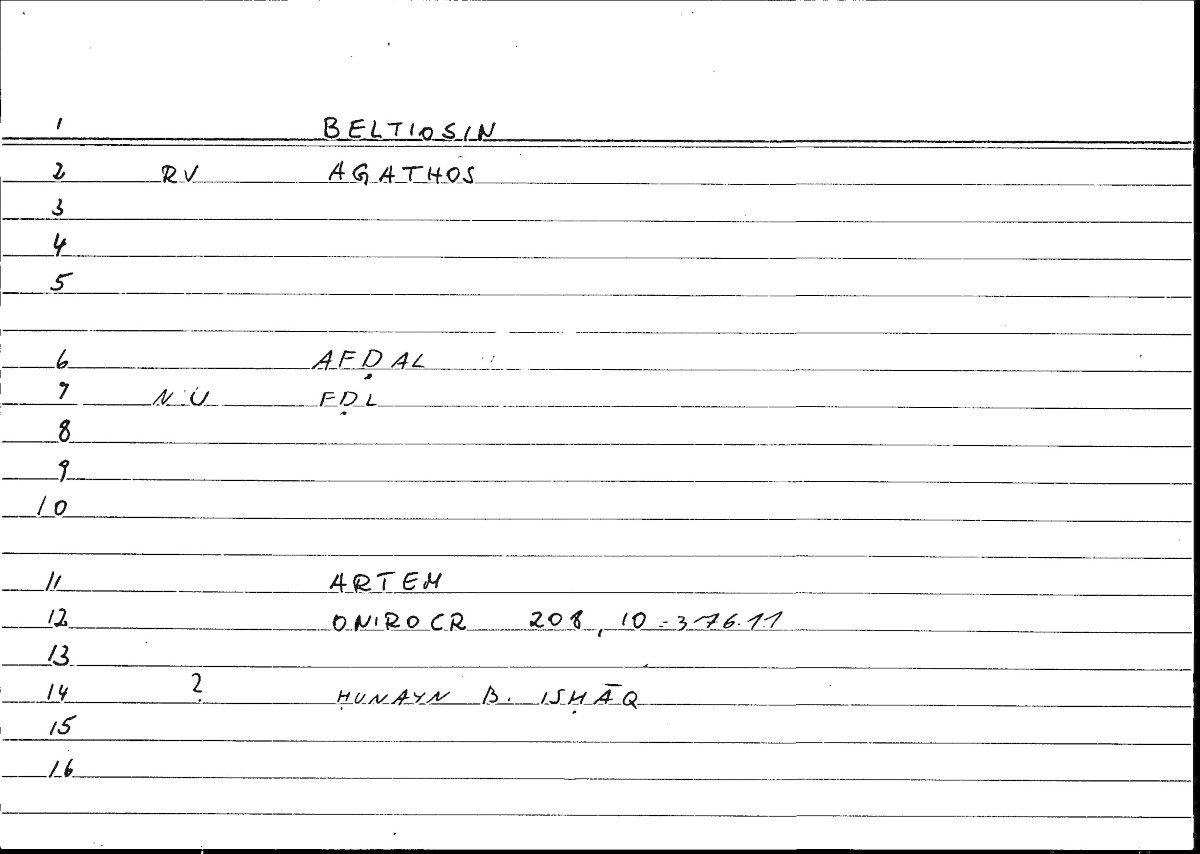 1 BELTIOSIN
2 RV AGATHOS
3
4
5
6 AFḌAL
7 N U FḌL
8
9
10
11 ARTEM
12 ONIROCR 208, 10 = 376.11
13
14 ? ḤUNAYN B. ISḤĀQ
15
16